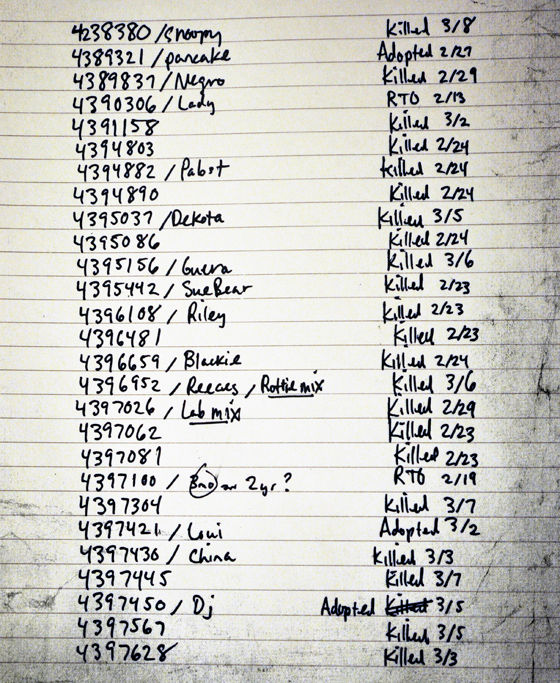 4238380 / Snoopy Killed 3/8
4389321 / pancake Adopted 2/27
4389837 / Negro Killed 2/29
4390306 / Lady RTO 2/13
4391158 Killed 3/2
4394803 Killed 2/24
4394882 / Pabst Killed 2/24
4394890 Killed 2/24
4395037 / Dekota Killed 3/5
4395086 Killed 2/24
4395156 / Guera Killed 3/6
4395442 / SueBear Killed 2/23
4396108 / Riley Killed 2/23
4396481 Killed 2/23
4396659 / Blackie Killed 2/24
4396952 / Reeces / Rottie mix Killed 3/6
4397026 / Lab mix Killed 2/29
4397062 Killed 2/23
4397081 Killed 2/23
4397100 / 8mo or 2yr? RTO 2/19
4397304 Killed 3/7
4397421 / Loui Adopted 3/2
4397430 / China Killed 3/3
4397445 Killed 3/7
4397450 / Dj Adopted Killed 3/5
4397567 Killed 3/5
4397628 Killed 3/3